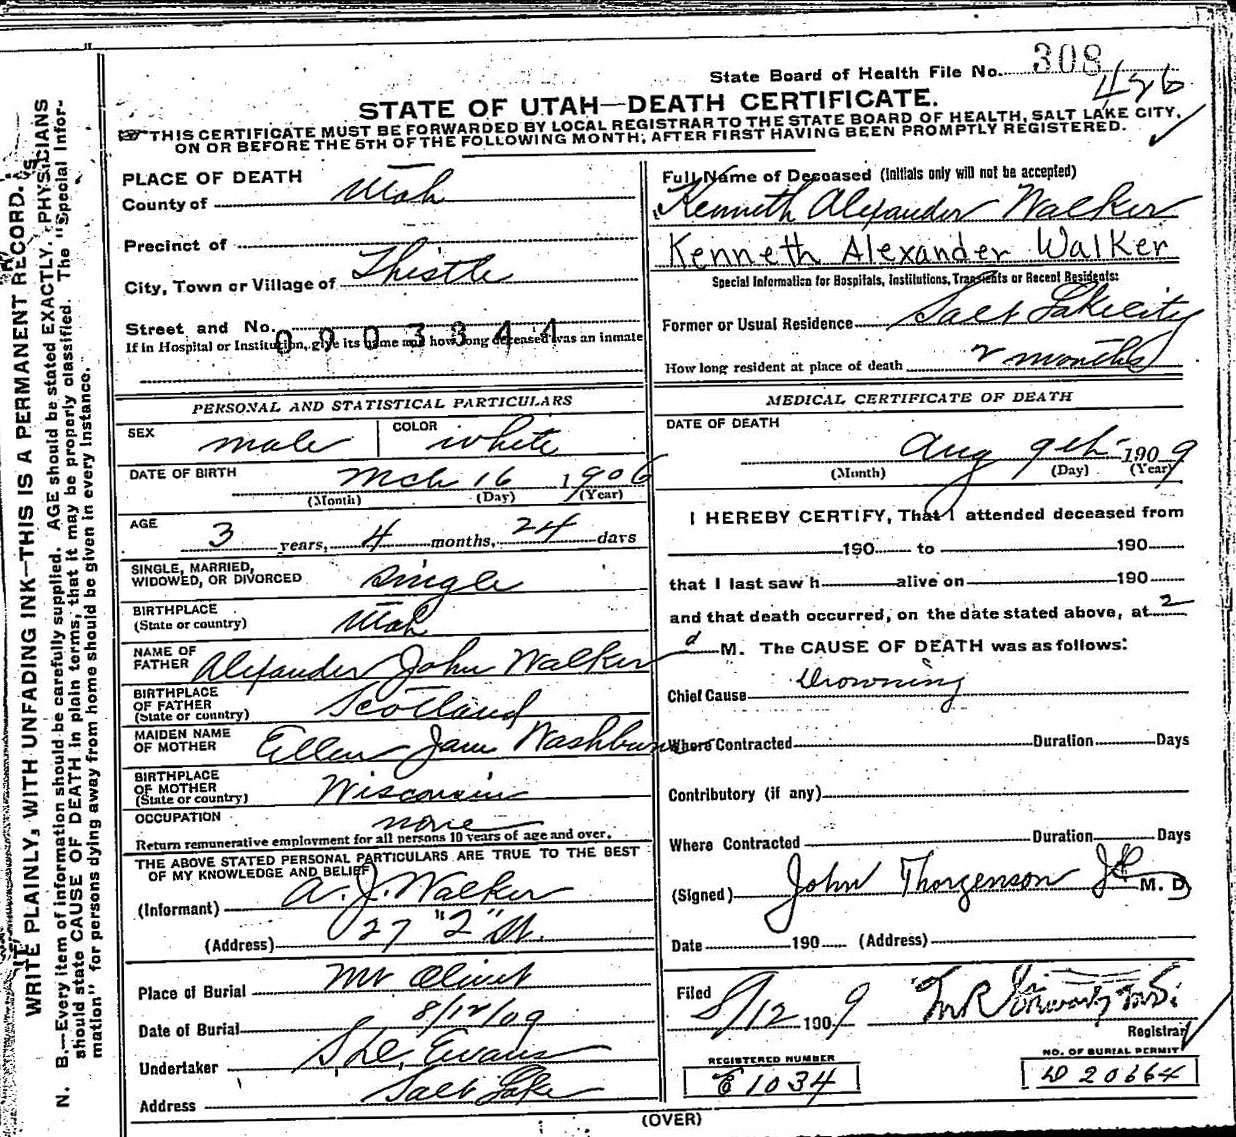 State Board of Health File No. 308
426
STATE OF UTAH—DEATH CERTIFICATE.
THIS CERTIFICATE MUST BE FORWARDED BY LOCAL REGISTRAR TO THE STATE BOARD OF HEALTH, SALT LAKE CITY,
ON OR BEFORE THE 5TH OF THE FOLLOWING MONTH, AFTER FIRST HAVING BEEN PROMPTLY REGISTERED.
PLACE OF DEATH
County of Utah
Precinct of
City, Town or Village of Thistle
Street and No.
0003844
If in Hospital or Institution, give its name and how long deceased was an inmate
PERSONAL AND STATISTICAL PARTICULARS
SEX male COLOR white
DATE OF BIRTH Mch 16 1906
(Month) (Day) (Year)
AGE 3 years, 4 months, 24 days
SINGLE, MARRIED,
WIDOWED, OR DIVORCED Single
BIRTHPLACE
(State or country) Utah
NAME OF
FATHER Alexander John Walker
BIRTHPLACE
OF FATHER
(State or country) Scotland
MAIDEN NAME
OF MOTHER Ellen Jane Washburn
BIRTHPLACE
OF MOTHER
(State or country) Wisconsin
OCCUPATION none
Return remunerative employment for all persons 10 years of age and over.
THE ABOVE STATED PERSONAL PARTICULARS ARE TRUE TO THE BEST
OF MY KNOWLEDGE AND BELIEF
(Informant) A. J. Walker
(Address) 27 "2" St.
Place of Burial Mt Olivet
Date of Burial 8/12/09
Undertaker Evans
Address Salt Lake
Full Name of Deceased (Initials only will not be accepted)
Kenneth Alexander Walker
Kenneth Alexander Walker
Special Information for Hospitals, Institutions, Transients or Recent Residents:
Former or Usual Residence Salt Lake City
How long resident at place of death 2 months
MEDICAL CERTIFICATE OF DEATH
DATE OF DEATH
Aug 9th 1909
(Month) (Day) (Year)
I HEREBY CERTIFY, That I attended deceased from
190 to 190
that I last saw h alive on 190
and that death occurred, on the date stated above, at 2
M. The CAUSE OF DEATH was as follows:
Chief Cause Drowning
Where Contracted Duration Days
Contributory (if any)
Where Contracted Duration Days
(Signed) John Thorgenson M. D.
Date 190 (Address)
Filed 8/12 1909
Registrar
REGISTERED NUMBER
E 1034
NO. OF BURIAL PERMIT
D 20664
(OVER)
WRITE PLAINLY, WITH UNFADING INK—THIS IS A PERMANENT RECORD.
N. B.—Every item of information should be carefully supplied. AGE should be stated EXACTLY. PHYSICIANS
should state CAUSE OF DEATH in plain terms, that it may be properly classified. The "Special Infor-
mation" for persons dying away from home should be given in every instance.